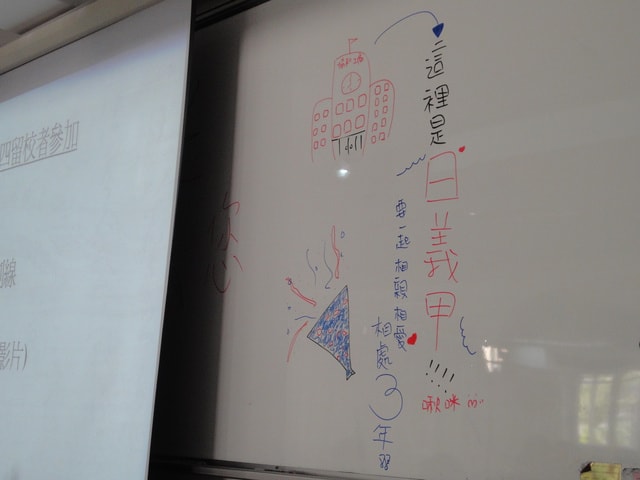 四留校者參加
線
影片)
這裡是
日義甲
!!!!
啾咪
要一起相親相愛
相處3年